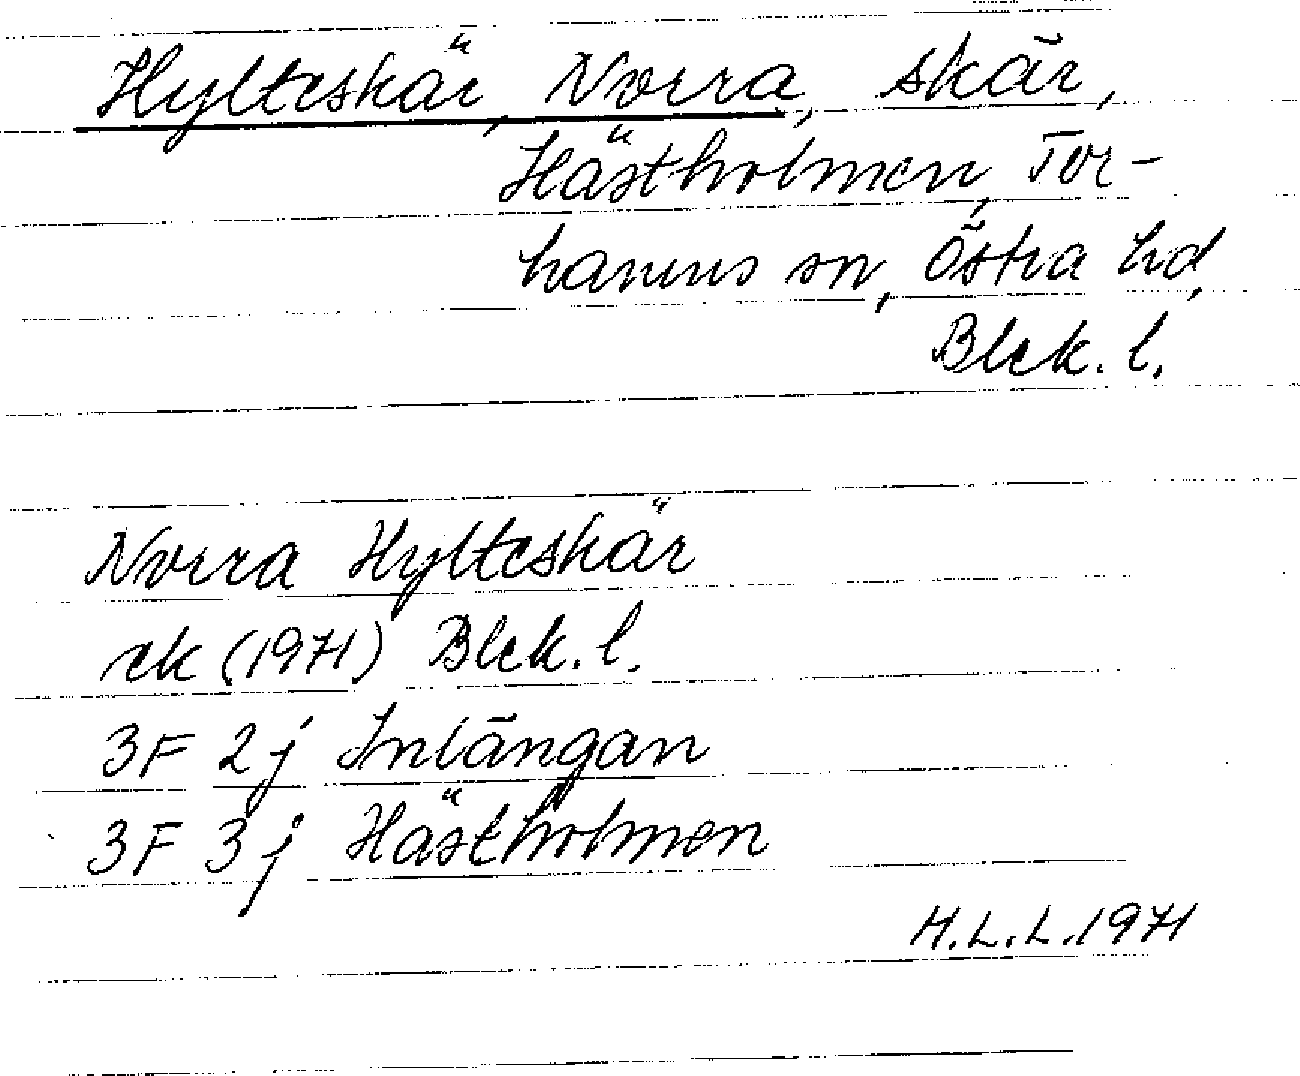 Hylteskär, Norra, skär,
Hästholmen, Tor-
hamns sn, Östra hd,
Blek. l.
Norra Hylteskär
ek (1971) Blek. l.
3F 2j Inlängan
3F 3j Hästholmen
H.L.L. 1971